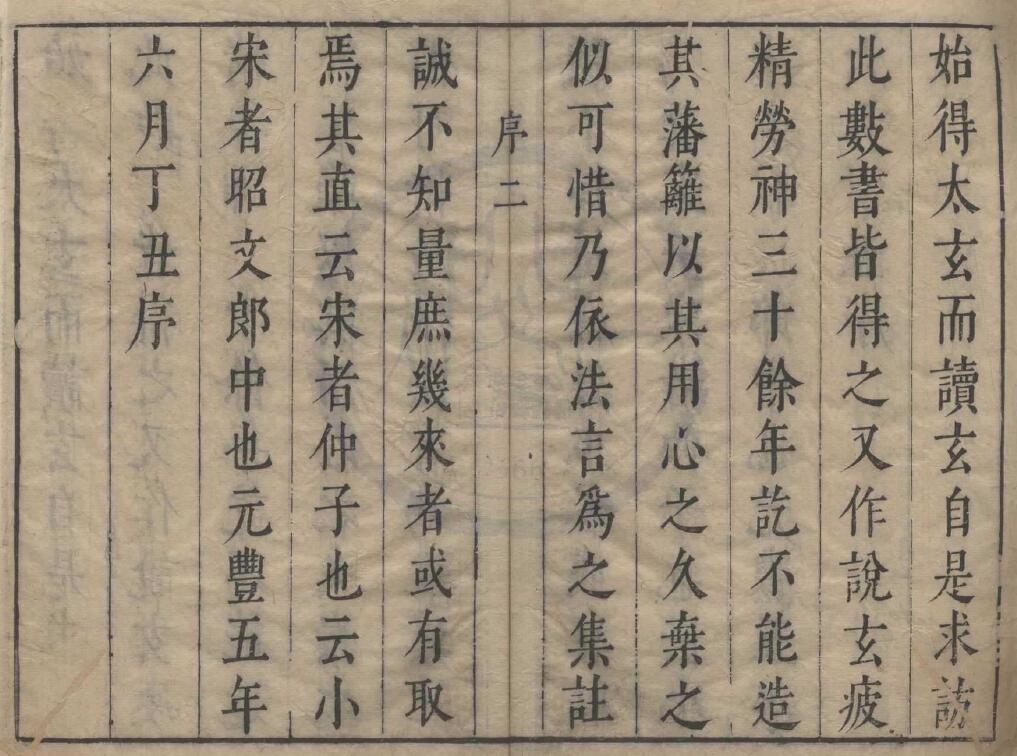 始得太玄而讀玄自是求訪
此數書皆得之又作說玄疲
精勞神三十餘年訖不能造
其藩籬以其用心之久棄之
似可惜乃依法言爲之集註
序二
誠不知量庶幾來者或有取
焉其直云宋者仲子也云小
宋者昭文郎中也元豐五年
六月丁丑序